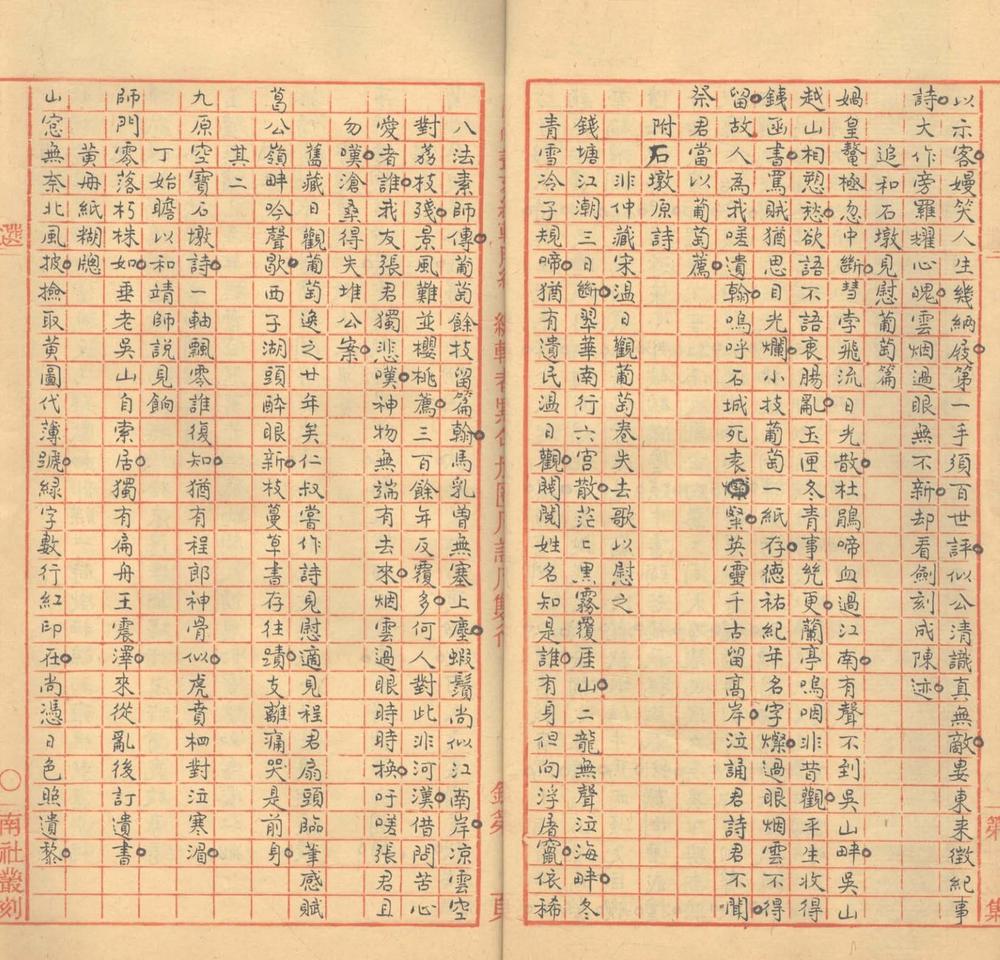 以示客嫚笑人生幾納屐第一手須百世評似公清識真無敵婁東来徵紀事
詩大作旁羅耀心魄雲烟過眼無不新却看劍刻成陳迹
追和石墩見慰葡萄篇
媧皇鼇極忽中斷彗孛飛流日光散杜鵑啼血過江南有聲不到吳山畔吳山
越山相愬愁欲語不語衷腸亂玉匣冬青事凳更蘭亭嗚咽非昔觀平生收得
錢函書罵賊猶思目光爛小技葡萄一紙存德祐紀年名字燦過眼烟雲不得
留故人為我嗟遺翰嗚呼石城死袁粲英靈千古留高岸泣誦君詩君不聞
祭君當以葡萄薦
附石墩原詩
非仲藏宋温日觀葡萄卷失去歌以慰之
錢塘江潮三日斷翠華南行六宫散茫〻黑霧覆厓山二龍無聲泣海畔冬
青雪冷子規啼猶有遺民温日觀閱閱姓名知是誰有身但向浮屠竄依稀
八法素師傳葡萄餘技留篇翰馬乳曾無塞上塵蝦鬚尚似江南岸凉雲空
對荔枝殘景風難並櫻桃薦三百餘年反覆多何人對此非河漢借問苦心
愛者誰我友張君獨悲嘆神物無端有去來烟雲過眼時時换吁嗟張君且
勿嘆滄桑得失堆公案
舊藏日觀葡萄逸之廿年矣仁叔嘗作詩見慰適見程君扇頭臨筆感賦
葛公嶺畔吟聲歇西子湖頭酔眼新枝蔓草書存往蹟支離痛哭是前身
其二
九原空寶石墩詩一軸飄零誰復知猶有程郎神骨似虎賁栖對泣寒湄
丁始瞻以和靖師説見餉
師門零落朽株如垂老吳山自索居獨有扁舟王震澤來從亂後訂遺書
黄冊紙糊牕
山窓無奈北風披撿取黄圖代薄號緑字數行紅印在尚憑日色照遺黎
選
南社叢刻